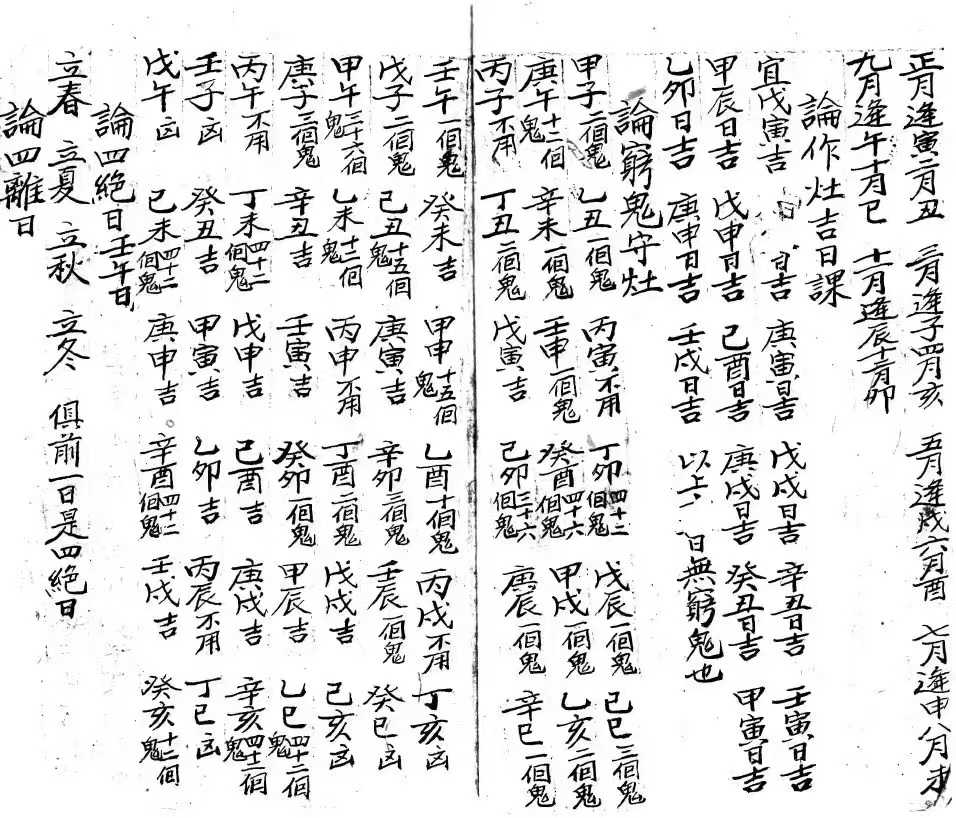 正月逢寅二月丑 三月逢子四月亥 五月逢戌六月酉 七月逢申八月未
九月逢午十月巳 十一月逢辰十二月卯
論作灶吉日課
宜戊寅吉 日 日吉 庚寅日吉 戊戌日吉 辛丑日吉 壬寅日吉
甲辰日吉 戊申日吉 己酉日吉 庚戌日吉 癸丑日吉 甲寅日吉
乙卯日吉 庚申日吉 壬戌日吉 以上 日無窮鬼也
論窮鬼守灶
甲子二個鬼 乙丑一個鬼 丙寅不用 丁卯四十二個鬼 戊辰一個鬼 己巳三個鬼
庚午十二個鬼 辛未一個鬼 壬申一個鬼 癸酉四十六個鬼 甲戌一個鬼 乙亥二個鬼
丙子不用 丁丑二個鬼 戊寅吉 己卯三十六個鬼 庚辰一個鬼 辛巳一個鬼
壬午一個鬼 癸未吉 甲申十五個鬼 乙酉十個鬼 丙戌不用 丁亥凶
戊子二個鬼 己丑十五個鬼 庚寅吉 辛卯三個鬼 壬辰一個鬼 癸巳凶
甲午三十六個鬼 乙未十二個鬼 丙申不用 丁酉二個鬼 戊戌吉 己亥凶
庚子三個鬼 辛丑吉 壬寅吉 癸卯一個鬼 甲辰吉 乙巳四十二個鬼
丙午不用 丁未四十二個鬼 戊申吉 己酉吉 庚戌吉 辛亥四十二個鬼
壬子凶 癸丑吉 甲寅吉 乙卯吉 丙辰不用 丁巳凶
戊午凶 己未四十二個鬼 庚申吉 辛酉四十二個鬼 壬戌吉 癸亥十二個鬼
論四絕日壬午日
立春 立夏 立秋 立冬 俱前一日是四絕日
論四離日